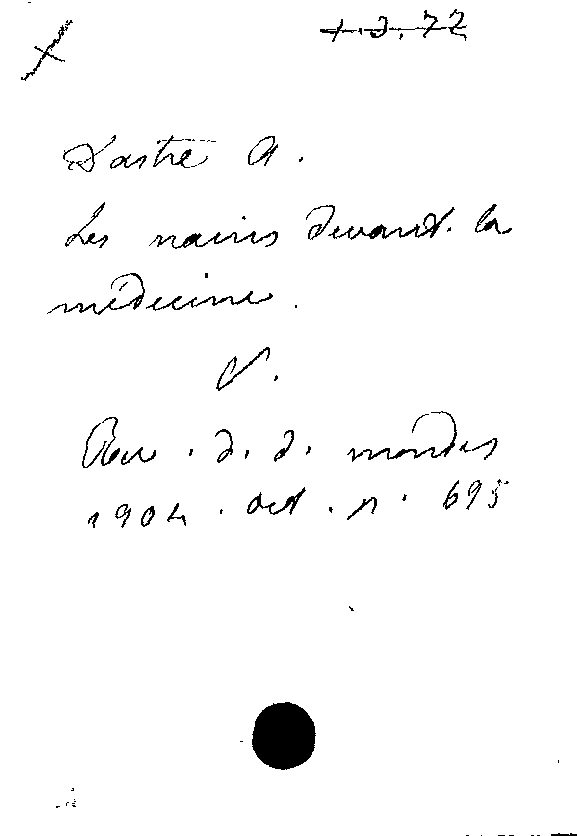 +.d.72
Dastre A.
Les nains devant la
médecine.
V.
Rev. d. d. mondes
1904. oct. p. 695